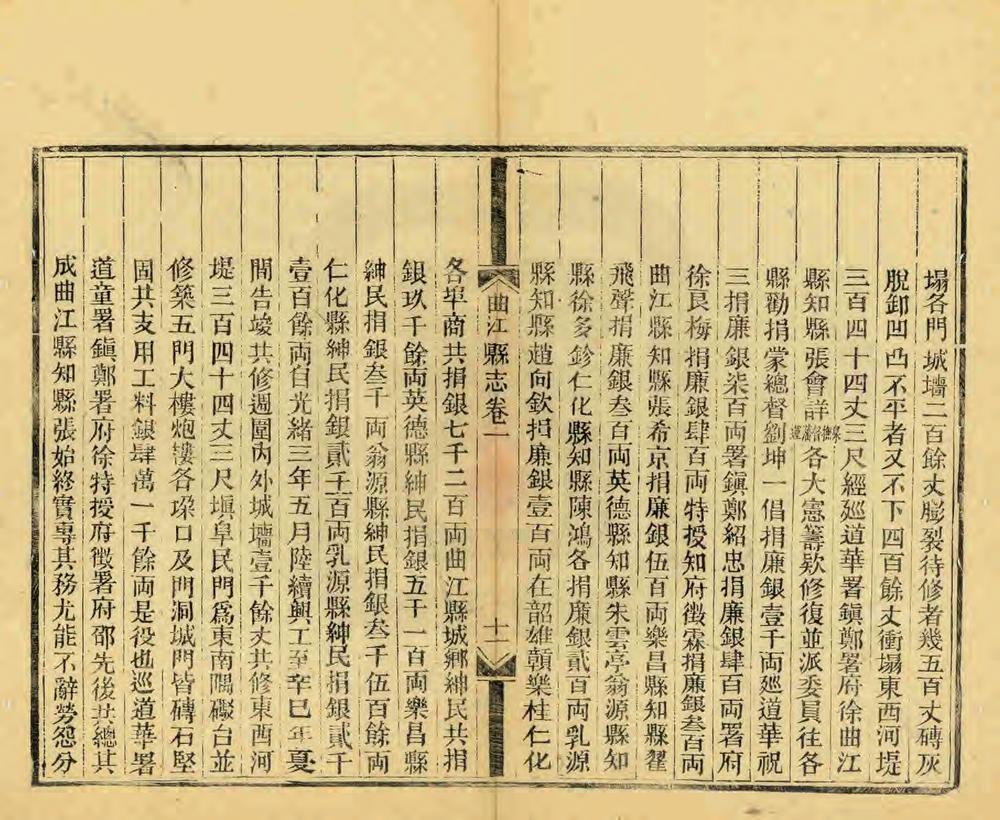 塌各門城墻二百餘丈膨裂待修者幾五百丈磚灰
脫卸凹凸不平者又不下四百餘丈衝塌東西河堤
三百四十四丈三尺經巡道華署鎭鄭署府徐曲江
縣知縣張會詳各大憲籌欵修復並派委員往各
縣勸捐蒙總督劉坤一倡捐廉銀壹千両廵道華祝
三捐廉銀柒百両署鎭鄭紹忠捐廉銀肆百両署府
徐良梅捐廉銀肆百両特授知府徵霖捐廉銀叁百両
曲江縣知縣張希京捐廉銀伍百両樂昌縣知縣翟
飛聲捐廉銀叁百両英德縣知縣朱雲亭翁源縣知
縣徐多鉁仁化縣知縣陳鴻各捐廉銀貳百両乳源
縣知縣趙向欽捐廉銀壹百両在韶雄贛樂桂仁化
曲江縣志卷一 十一
各埠商共捐銀七千二百両曲江縣城鄕紳民共捐
銀玖千餘両英德縣紳民捐銀五千一百両樂昌縣
紳民捐銀叁千両翁源縣紳民捐銀叁千伍百餘両
仁化縣紳民捐銀貳千百両乳源縣紳民捐銀貳千
壹百餘両自光緒三年五月陸續興工至辛巳年夏
間告竣共修週圍內外城墻壹千餘丈共修東西河
堤三百四十四丈三尺塡阜民門爲東南隅礮台並
修築五門大樓炮樓各垛口及門洞城門皆磚石堅
固其支用工料銀肆萬一千餘両是役也巡道華署
道童署鎭鄭署府徐特授府徵署府鄧先後共總其
成曲江縣知縣張始終實專其務尤能不辭勞怨分